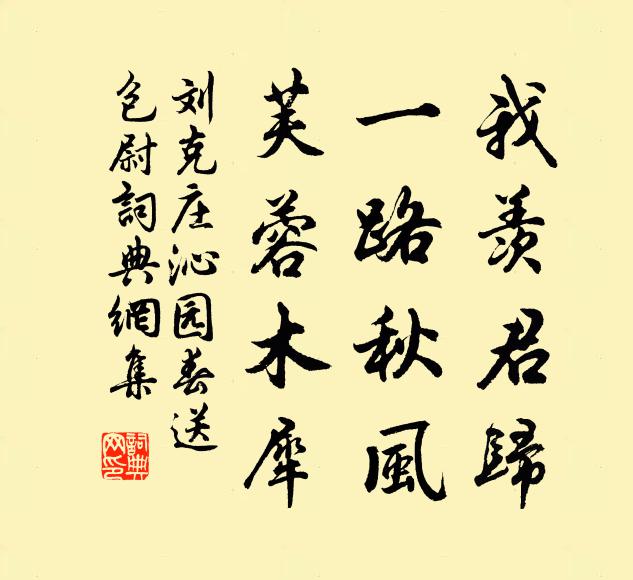 我羨君歸
一路秋風
芙蓉木犀
刘克庄沁园春送
包尉詞典網集
詞典
网印